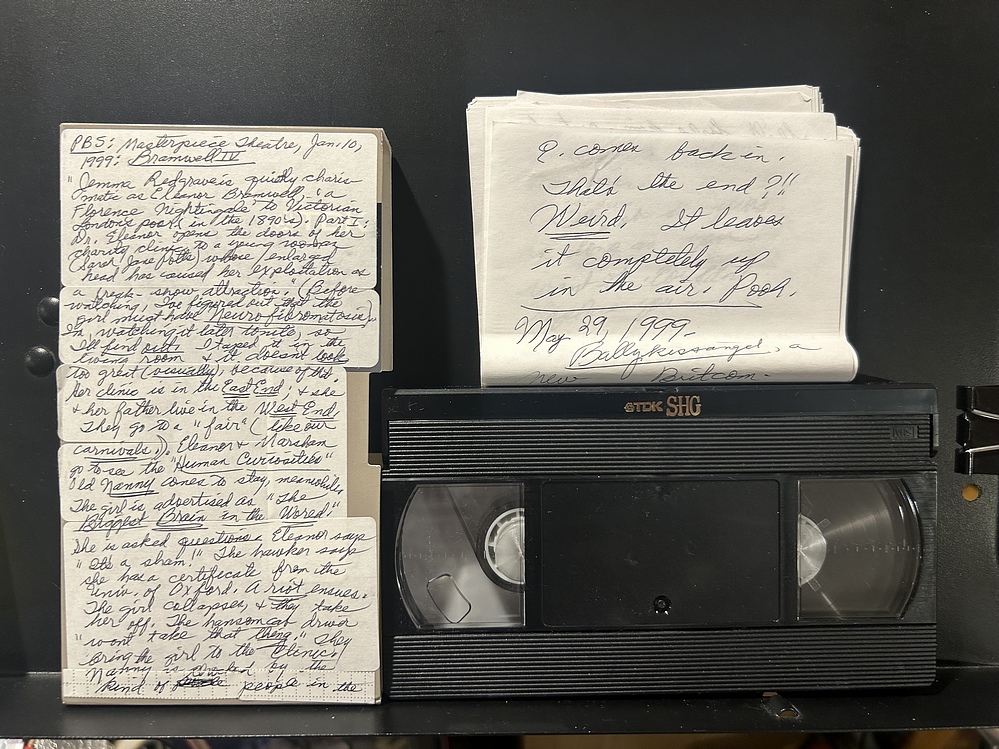 PBS: Masterpiece Theatre, Jan. 10,
1999: Bramwell IV
"Jemma Redgrave is quietly charis-
matic as Eleanor Bramwell, 'a
Florence Nightingale to Victorian
London's poor' (in the 1890's). Part I:
Dr. Eleanor opens the doors of her
charity clinic to a young woman
(Sarah Jane Potts) whose enlarged
head has caused her exploitation as
a freak-show attraction." (Before
watching, I've figured out that the
girl must have Neurofibromatosis).
I'm watching it later tonite, so
I'll find out. I taped it in the
living room & it doesn't look
too great (visually) because of this.
Her clinic is in the East End; & she
& her father live in the West End.
They go to a "fair" (like our
carnivals.). Eleanor & Marsham
go to see the "Human Curiosities"
Old Nanny comes to stay, meanwhile,
The girl is advertised as "The
Biggest Brain in the World."
She is asked questions & Eleanor says
"It's a sham!" The hawker says
she has a certificate from the
Univ. of Oxford. A riot ensues.
The girl collapses, & they take
her off. The hansom cab driver
"won't take that thing." They
bring the girl to the Clinic.
Nanny is by the
kind of people in the
Q. comes back in.
That's the end?!!
Weird. It leaves
it completely up
in the air. Poor.
May 29, 1999-
Ballykissangel, a
new Britcom.
TDK SHG